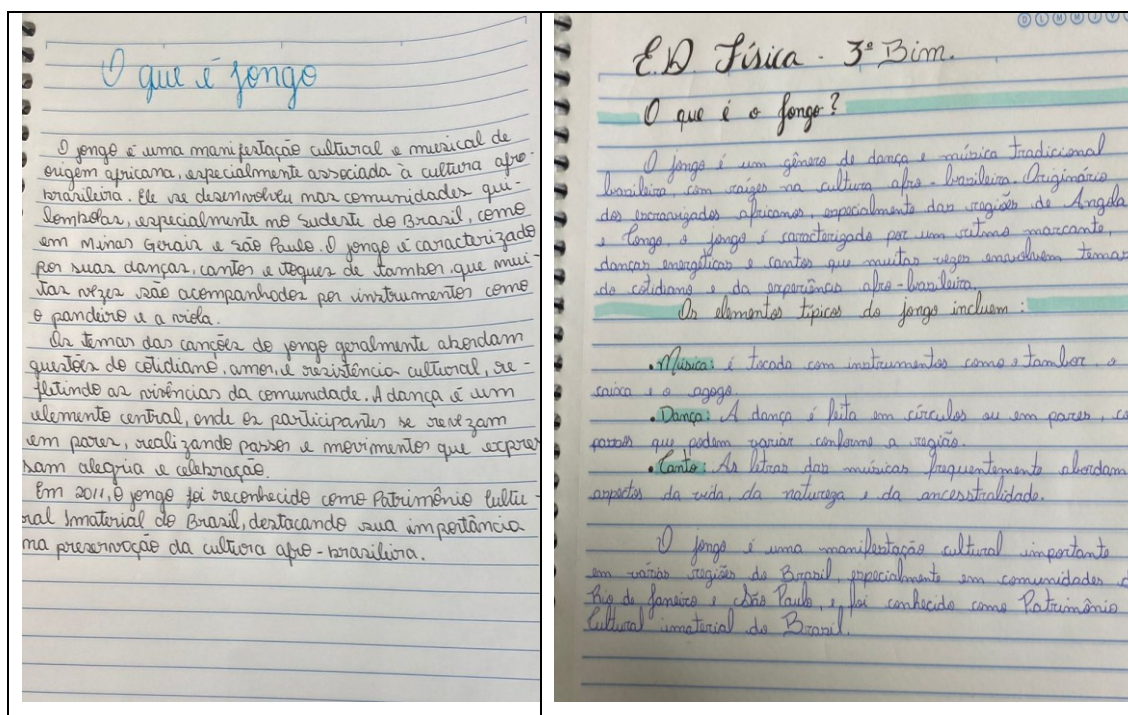 O que é jongo
O jongo é uma manifestação cultural e musical de
origem africana, especialmente associada à cultura afro-
brasileira. Ele se desenvolveu nas comunidades qui-
lombolas, especialmente no sudeste do Brasil, como
em Minas Gerais e São Paulo. O jongo é caracterizado
por suas danças, cantos e toques de tambor, que mui-
tas vezes são acompanhados por instrumentos como
o pandeiro e a viola.
Os temas das canções do jongo geralmente abordam
questões do cotidiano, amor, e resistência cultural, re-
fletindo as vivências da comunidade. A dança é um
elemento central, onde os participantes se revezam
em pares, realizando passos e movimentos que expres
sam alegria e celebração.
Em 2011, o jongo foi reconhecido como Patrimônio Cultu-
ral Imaterial do Brasil, destacando sua importância
na preservação da cultura afro-brasileira.
D L M M J V S
E.D Física - 3º Bim.
O que é o jongo?
O jongo é um gênero de dança e música tradicional
brasileira com raízes na cultura afro-brasileira. Originário
dos escravizados africanos, especialmente das regiões de Angola
e Congo, o jongo é caracterizado por um ritmo marcante,
danças energéticas e cantos que muitas vezes envolvem temas
do cotidiano e da experiência afro-brasileira.
Os elementos típicos do jongo incluem:
• Música: é tocada com instrumentos como o tambor, o
caixa e o agogo.
• Dança: A dança é feita em círculos ou em pares, co
passos que podem variar conforme a região.
• Canto: As letras das músicas frequentemente abordam
aspectos da vida, da natureza e da ancestralidade.
O jongo é uma manifestação cultural importante
em várias regiões do Brasil, especialmente em comunidades d
Rio de Janeiro e São Paulo, e foi conhecido como Patrimônio
Cultural imaterial do Brasil.